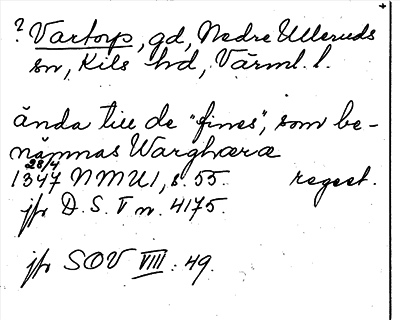 ? Vartorp, gd, Nedre Ulleruds
sn, Kils hd, Värml. l.
ända till de "fines", som be-
nämnas Warghæræ
28/4
1347 NMU1, s. 55. regest.
jfr D. S. V n. 4175.
jfr SOV VIII: 49.